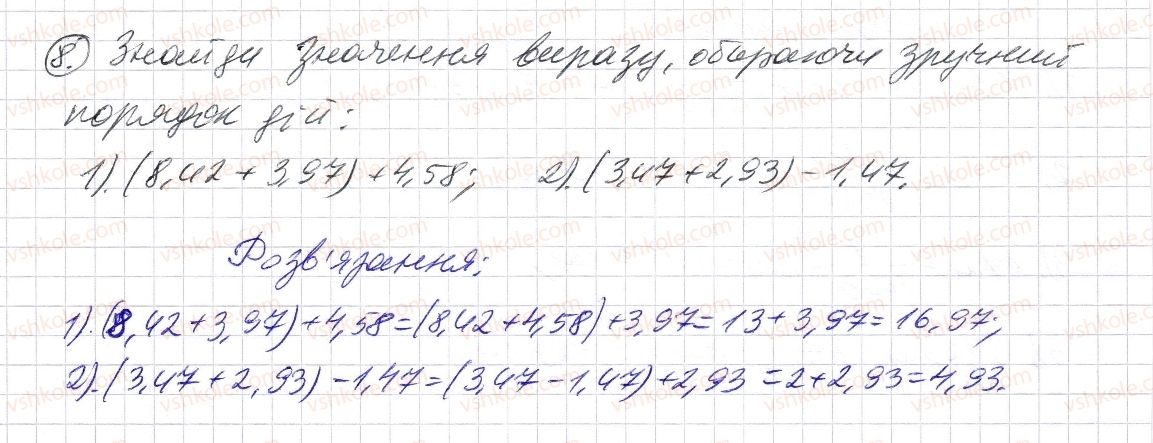 8. Знайди значення виразу, обираючи зручний
порядок дій:
1). (8,42 + 3,97) + 4,58; 2). (3,47 + 2,93) - 1,47.
Розв'язання:
1). (8,42 + 3,97) + 4,58 = (8,42 + 4,58) + 3,97 = 13 + 3,97 = 16,97;
2). (3,47 + 2,93) - 1,47 = (3,47 - 1,47) + 2,93 = 2 + 2,93 = 4,93.